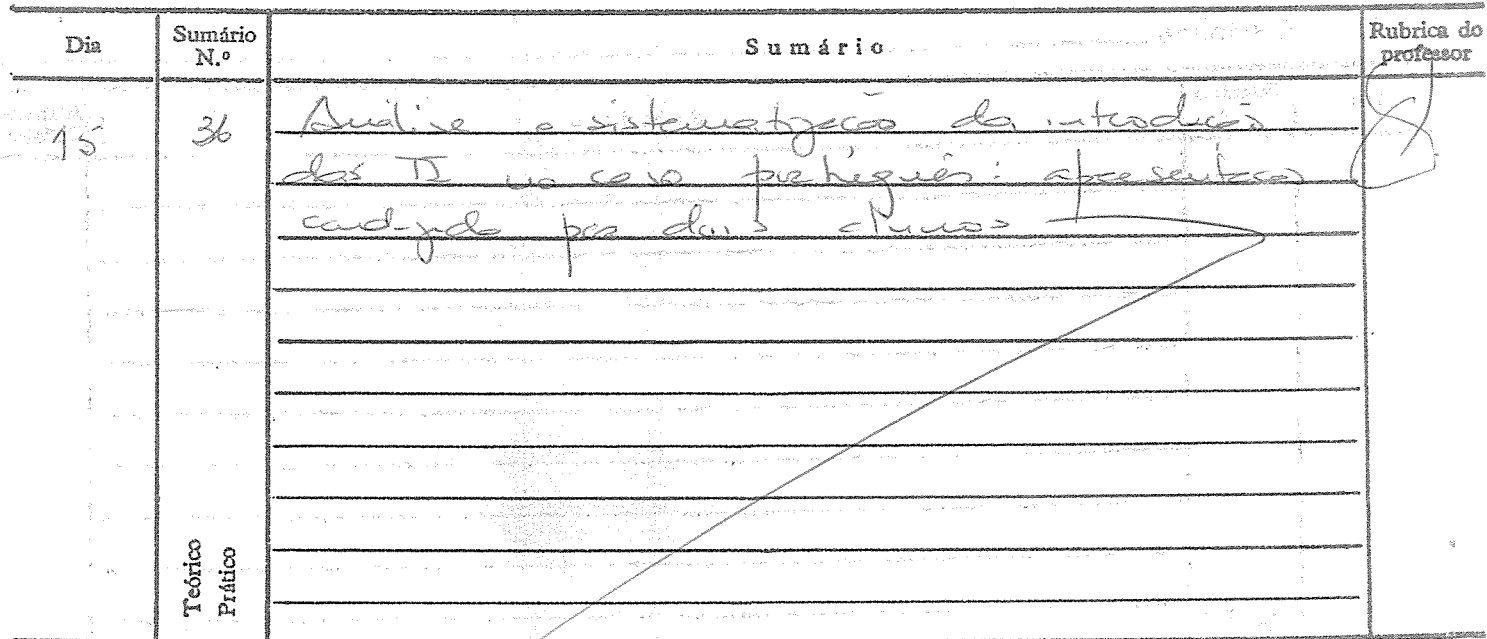 Dia Sumário N.º Sumário Rubrica do professor
15 36 Análise e sistematização da introdução
das TI no caso português: apresentação
conduzida por dois alunos
Teórico
Prático